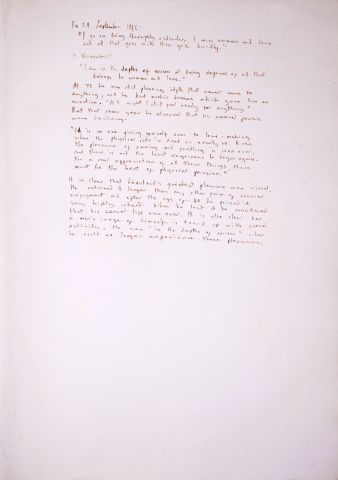 On 29 September 1882:
"I go on being thoroughly ridiculous, I miss women and love
and all that goes with them quite horribly."
3 November:
"I am in the depths of sorrow at being deprived of all that
belongs to women and love."
At 78 he was still planning idylls that never came to
anything, but he had erotic dreams which gave him an
erection. "At night I still feel ready for anything."
But that same year he observed that his sexual powers
were declining.
"It is no use giving yourself over to love-making
when the physical side is dead or nearly so. Even
the pleasure of seeing and fondling is soon over
and there is not the least eagerness to begin again.
For a real appreciation of all these things there
must be the heat of physical passion."
It is clear that Léautaud's greatest pleasure was visual.
He retained it longer than any other form of sensual
enjoyment and after the age of 40 he prized it
very highly indeed. When he lost it he considered
that his sexual life was over. It is also clear how
a man's image of himself is bound up with sexual
activity. He was "in the depths of sorrow" when
he could no longer experience these pleasures.